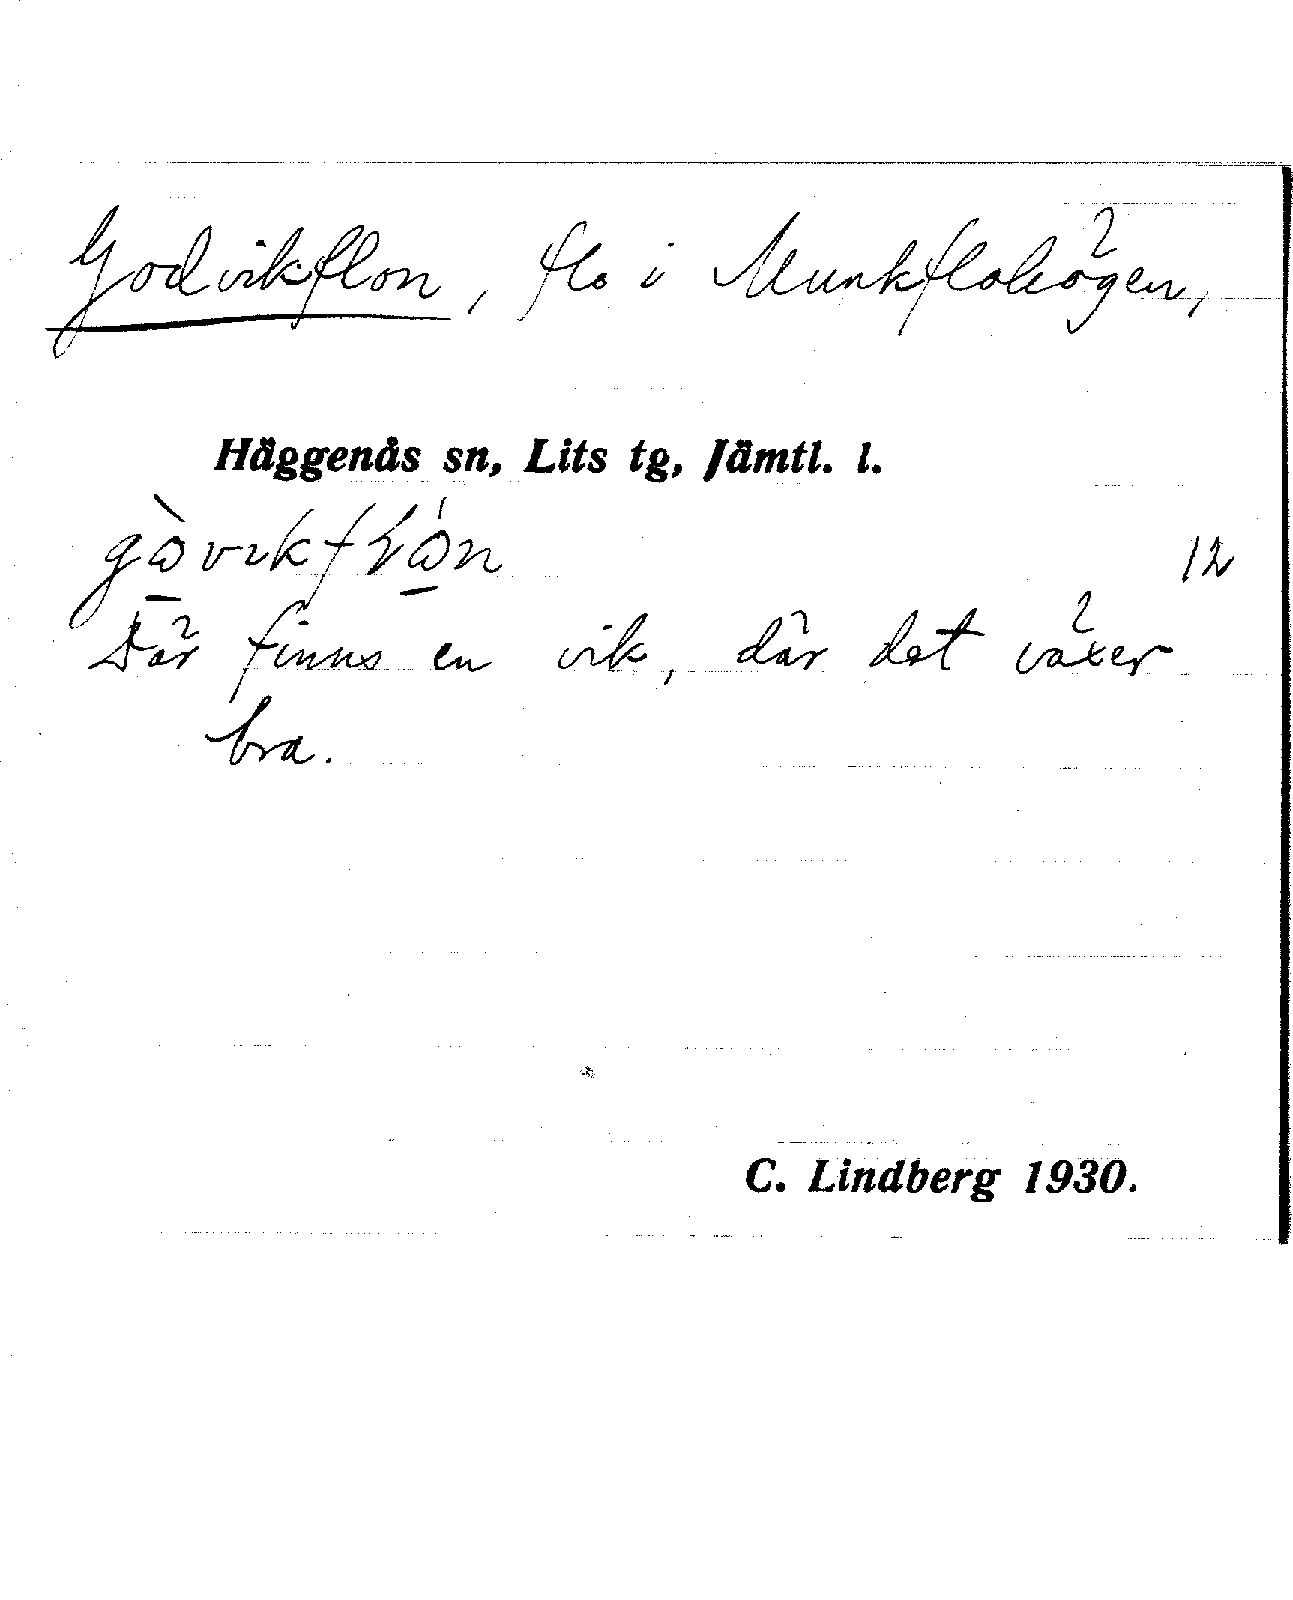 Godvikflon, flo i Munkflohögen,
Häggenås sn, Lits tg, Jämtl. l.
12
Där finns en vik, där det växer
bra.
C. Lindberg 1930.